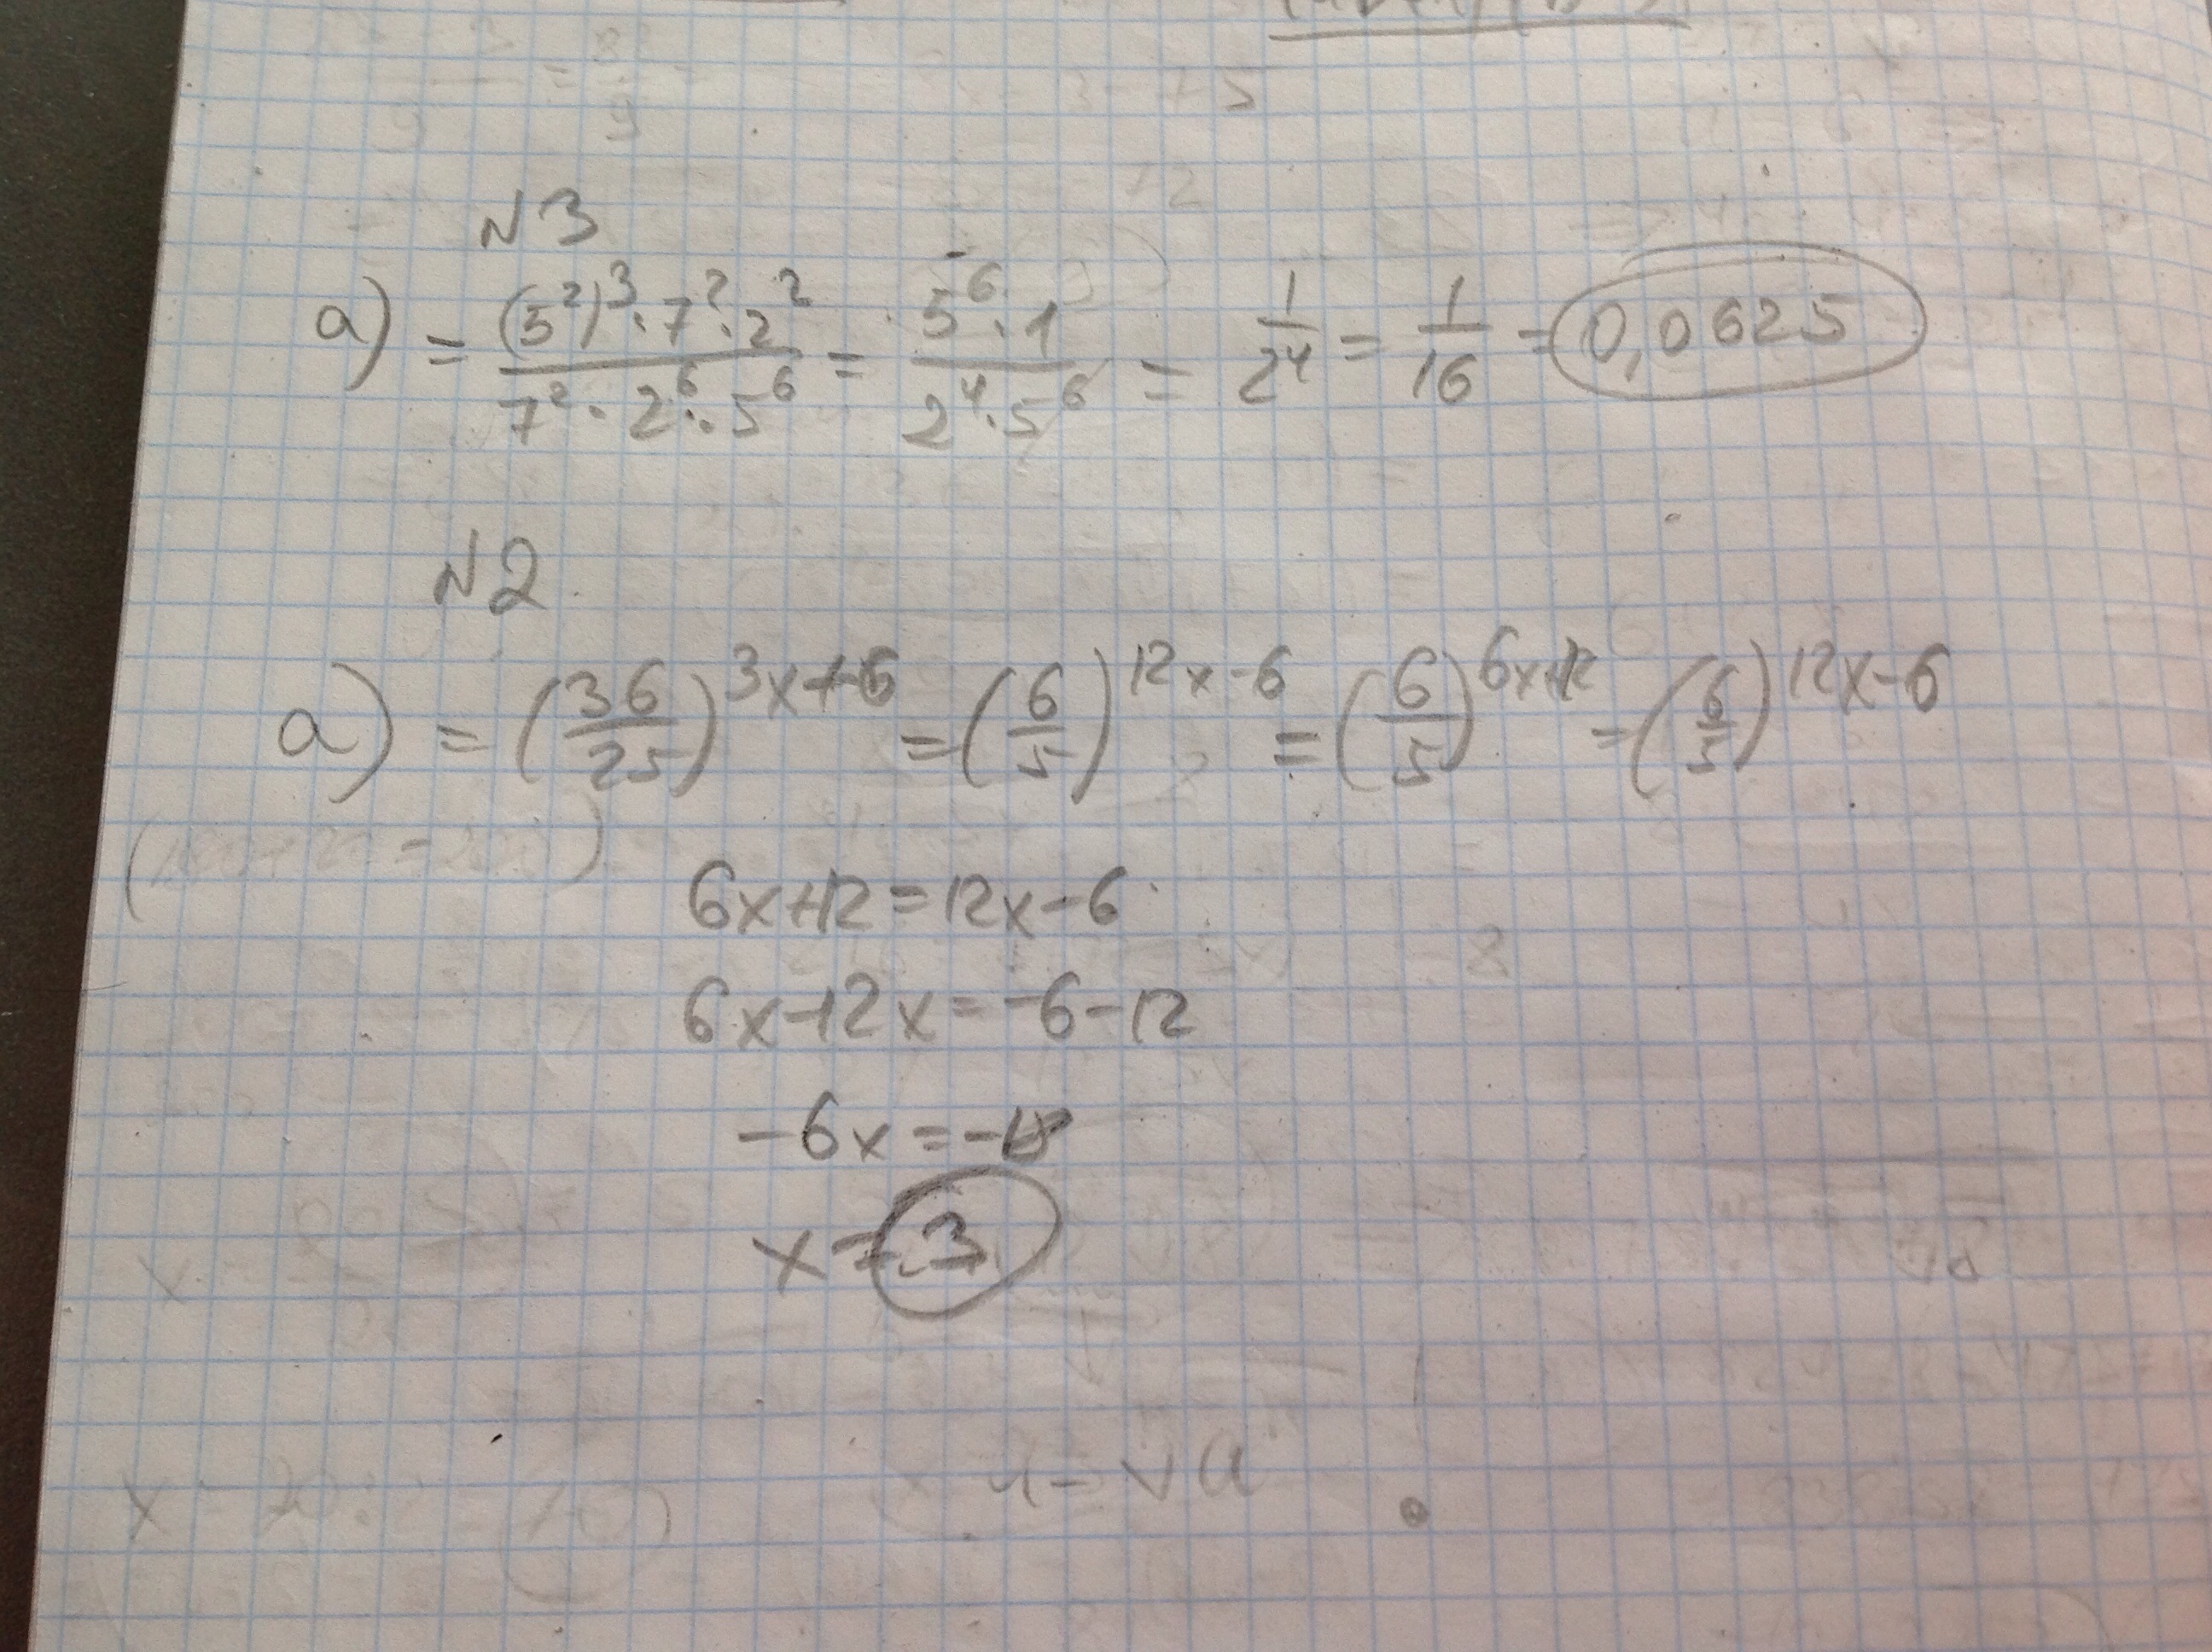 N3
a) = (5²)³·7²·2² / 7²·2⁶·5⁶ = 5⁶·1 / 2⁴·5⁶ = 1/2⁴ = 1/16 = 0,0625
N2
a) = (36/25)^3x+6 = (6/5)^12x-6 = (6/5)^6x+12 = (6/5)^12x-6
6x+12=12x-6
6x-12x=-6-12
-6x=-18
x=3